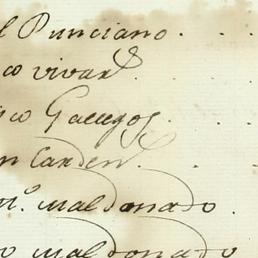 l Punciano.
co vivar.
sco Gallegos.
n Carden.
m.º maldonado.
o maldonado